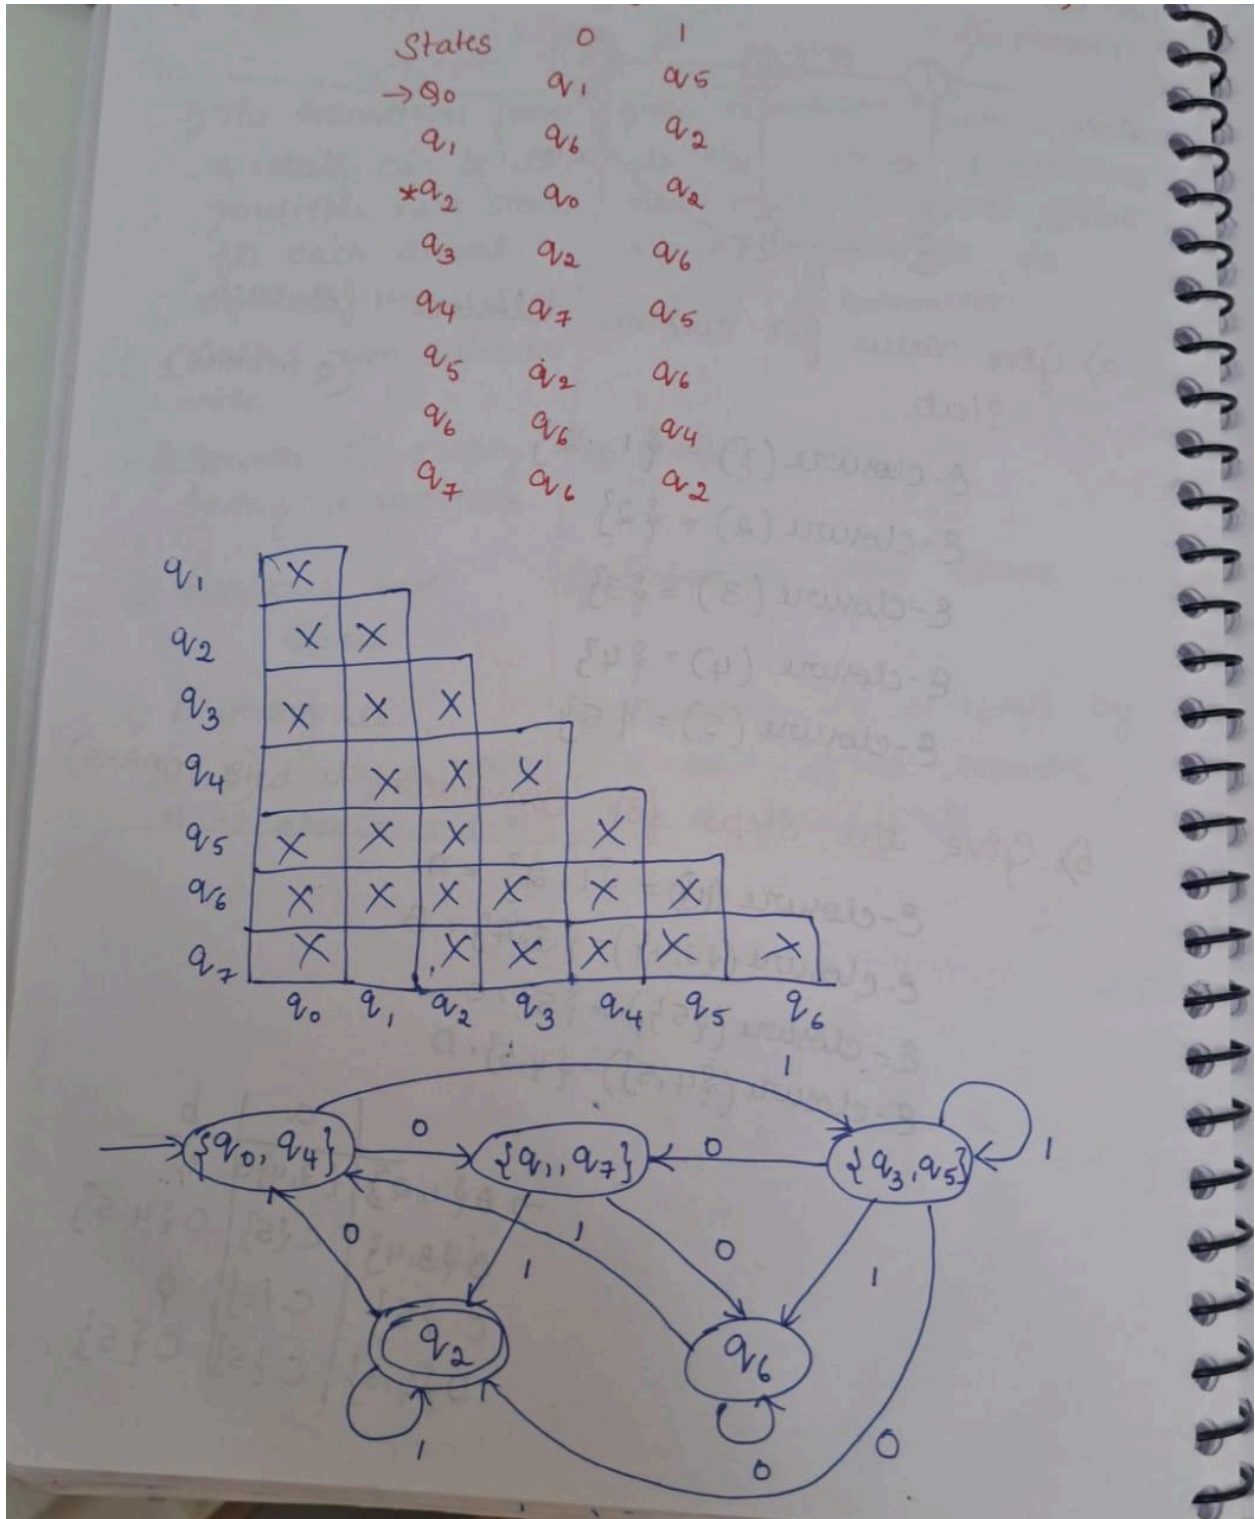 States 0 1
→q0 q1 q5
q1 q6 q2
*q2 q0 q2
q3 q2 q6
q4 q7 q5
q5 q2 q6
q6 q6 q4
q7 q6 q2
q1 X
q2 X X
q3 X X X
q4 X X X
q5 X X X X
q6 X X X X X X
q7 X X X X X X
q0 q1 q2 q3 q4 q5 q6
1
{q0, q4} 0 {q1, q7} 0 {q3, q5} 1
0 1 1 0 1
q2 q6
1 0 0